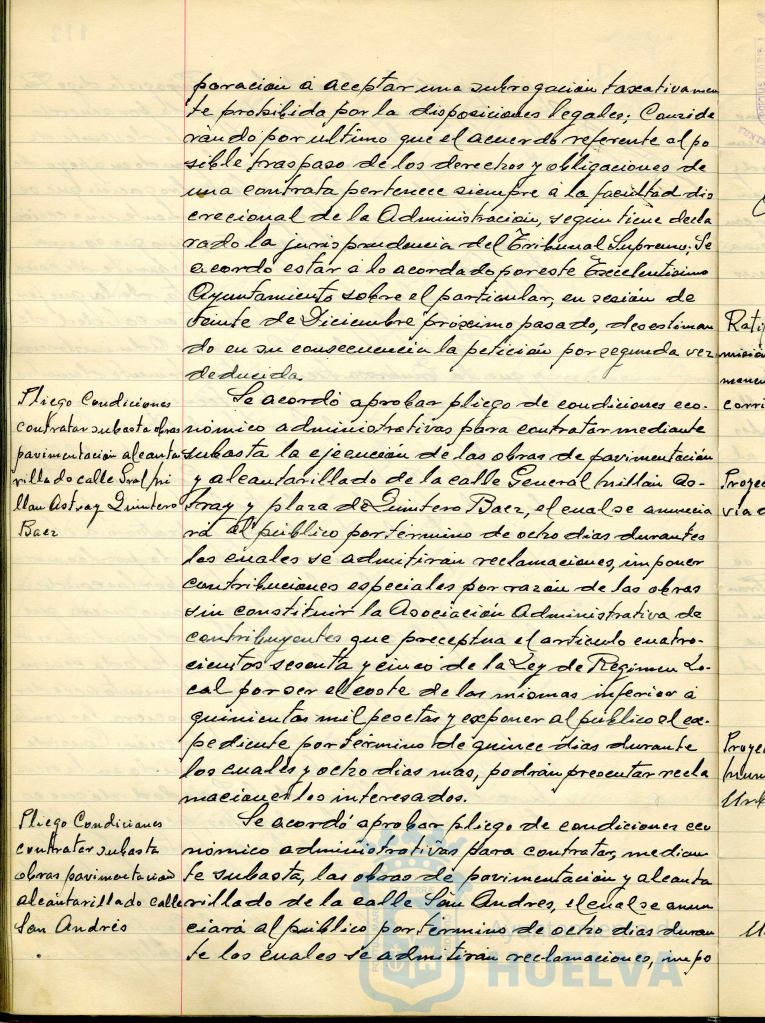 poración a aceptar una subrogación taxativamen
te prohibida por la disposiciones legales; Conside
rando por ultimo que el acuerdo referente al po
sible traspaso de los derechos y obligaciones de
una contrata pertenece siempre á la facultad dis
crecional de la Administracion, segun tiene decla
rado la jurisprudencia del Tribunal Supremo; Se
acordo estar á lo acordado por este Excelentisimo
Ayuntamiento sobre el particular, en sesión de
veinte de Diciembre próximo pasado, desestiman
do en su consecuencia la petición por segunda vez
deducida.
Pliego Condiciones
contratar subasta obras
pavimentación alcanta
rillado calle Gral Mi
llan Astray Quintero
Baez
Se acordó aprobar pliego de condiciones eco-
nómico administrativas para contratar mediante
subasta la ejecución de las obras de pavimentación
y alcantarillado de la calle General Millán As-
tray y plaza de Quintero Baez, el cual se anuncia
rá al público por término de ocho dias durantes
los cuales se admitirán reclamaciones, imponer
contribuciones especiales por razón de las obras
sin constituir la Asociación Administrativa de
contribuyentes que preceptua el artículo cuatro-
cientos sesenta y cinco de la Ley de Régimen Lo-
cal por ser el coste de las mismas inferior á
quinientas mil pesetas y exponer al público el ex-
pediente por término de quince dias durante
los cuales y ocho dias mas, podrán presentar recla
maciones los interesados.
Pliego Condiciones
contratar subasta
obras pavimentacion
alcantarillado calle
San Andrés
Se acordó aprobar pliego de condiciones eco
nómico administrativas para contratar, median
te subasta, las obras de pavimentación y alcanta
rillado de la calle San Andres, el cual se anun
ciará al público por término de ocho dias duran
te los cuales se admitirán reclamaciones, impo
HUELVA